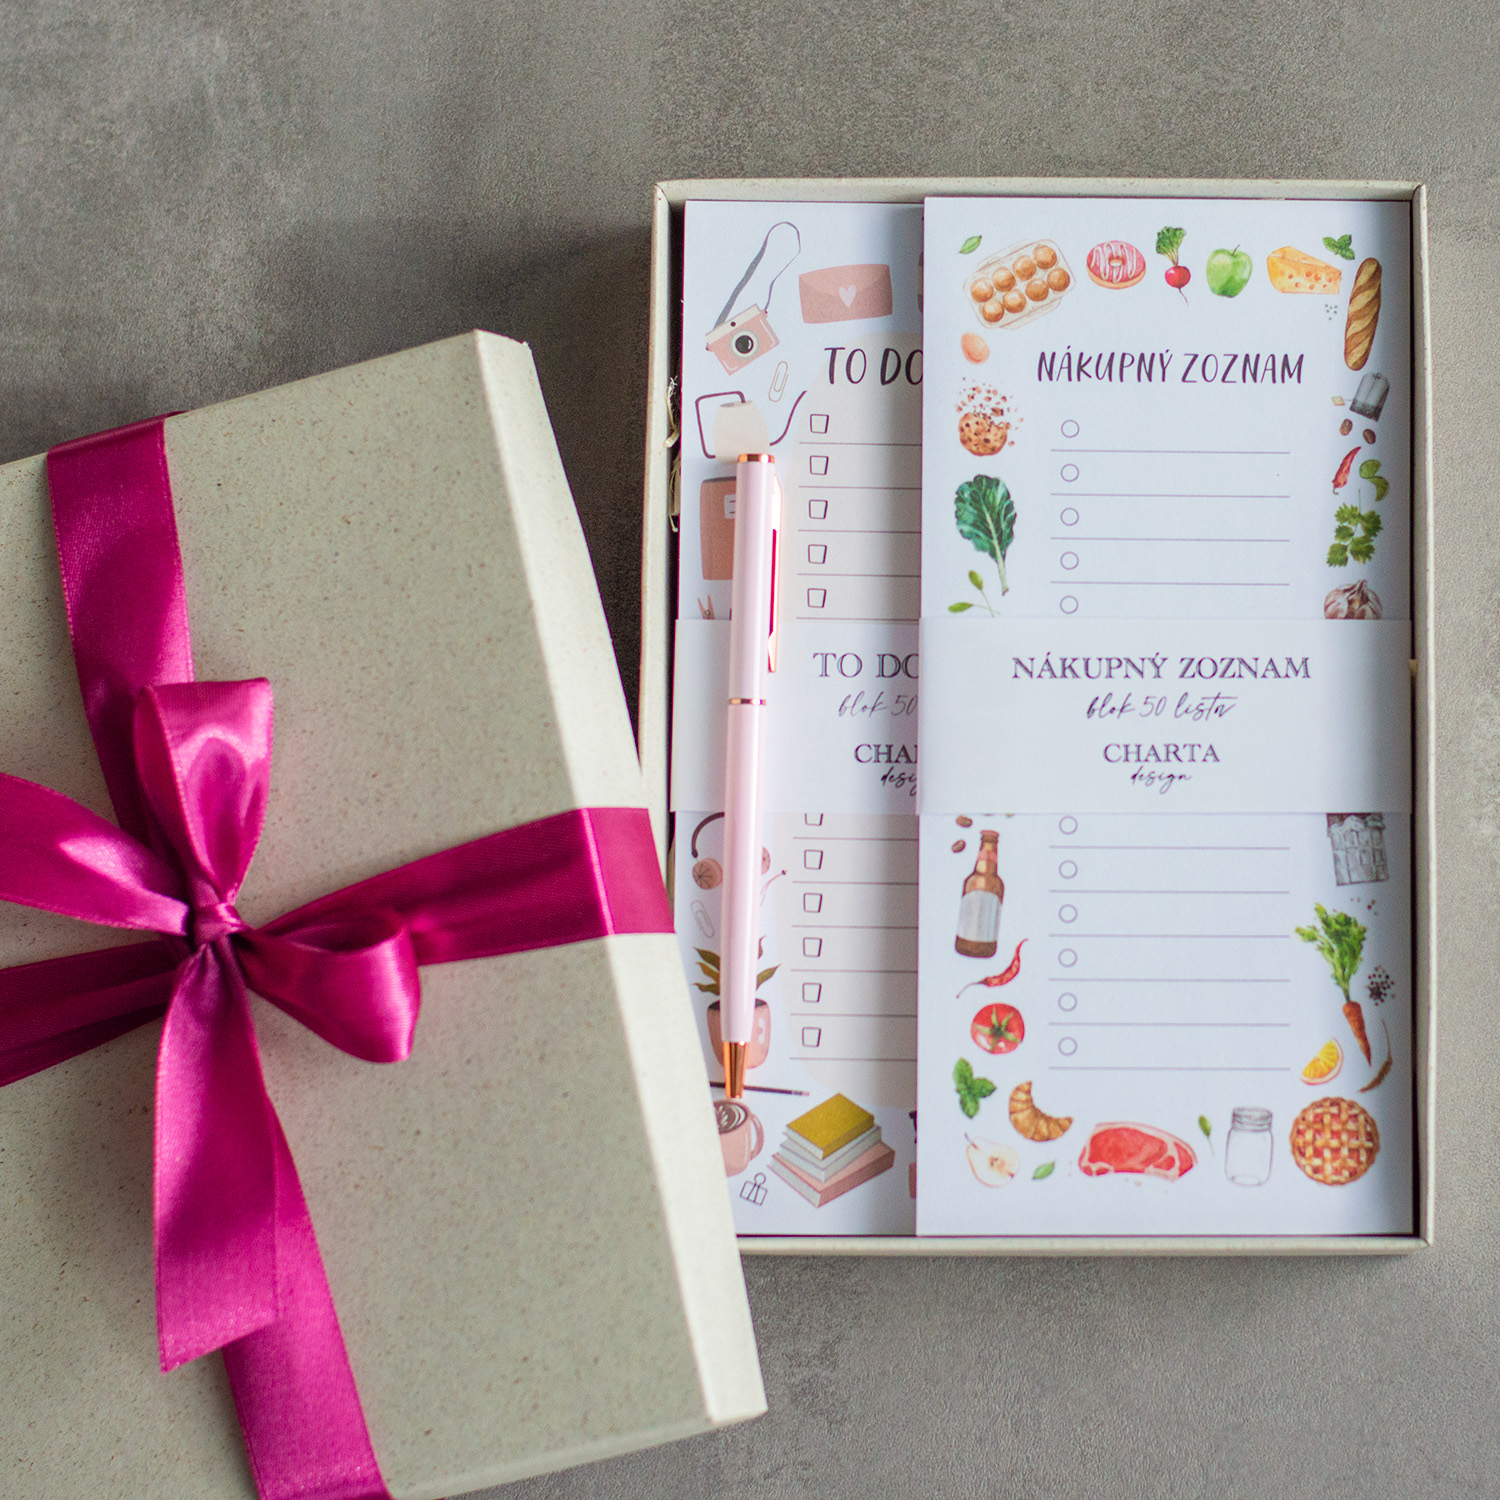 TO DO
NÁKUPNÝ ZOZNAM
TO DO
blok 50
NÁKUPNÝ ZOZNAM
blok 50 listov
CHARTA
design